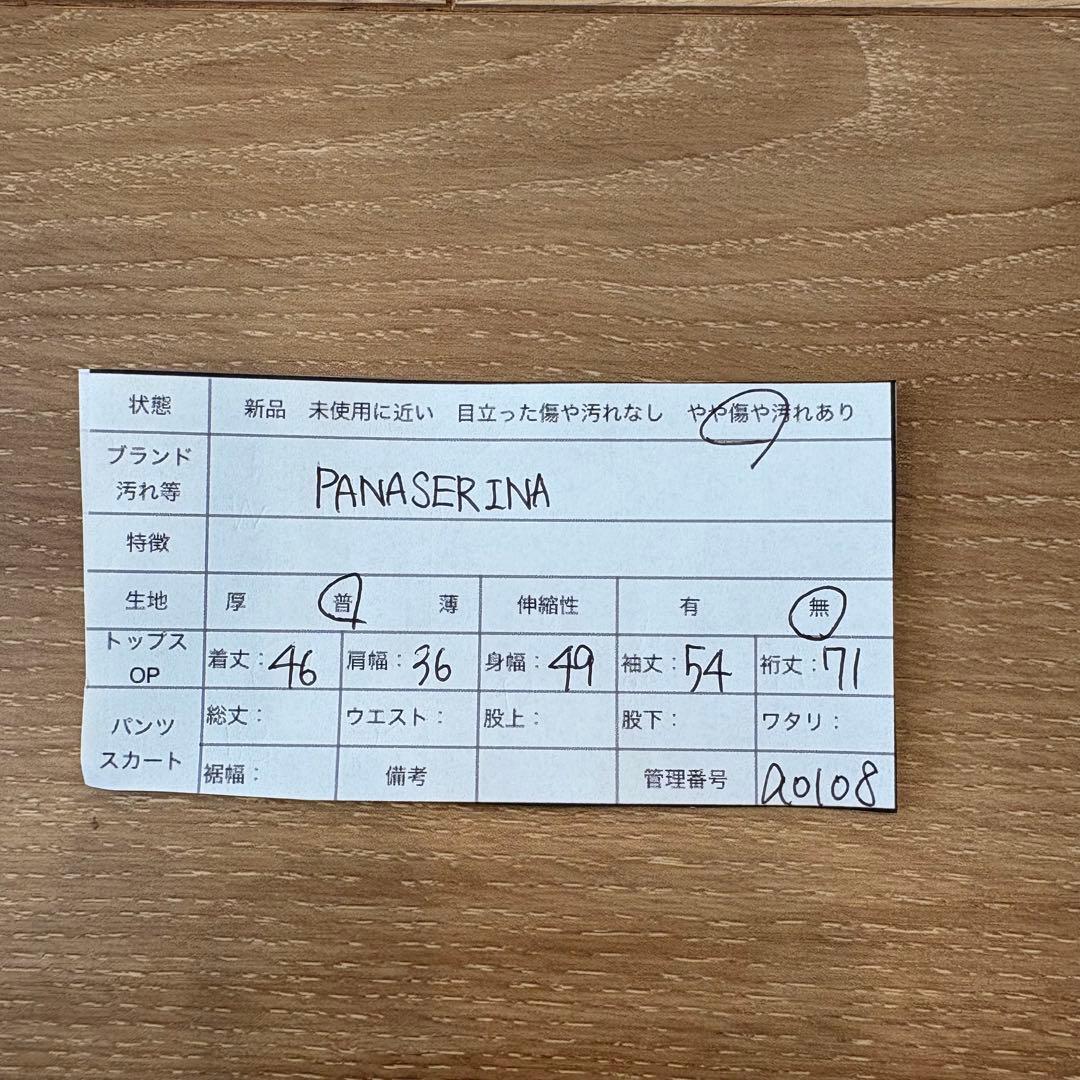 状態 新品 未使用に近い 目立った傷や汚れなし やや傷や汚れあり
ブランド
汚れ等 PANASERINA
特徴
生地 厚 普 薄 伸縮性 有 無
トップス
OP 着丈：46 肩幅：36 身幅：49 袖丈：54 裄丈：71
パンツ
スカート 総丈： ウエスト： 股上： 股下： ワタリ：
裾幅： 備考 管理番号 a0108